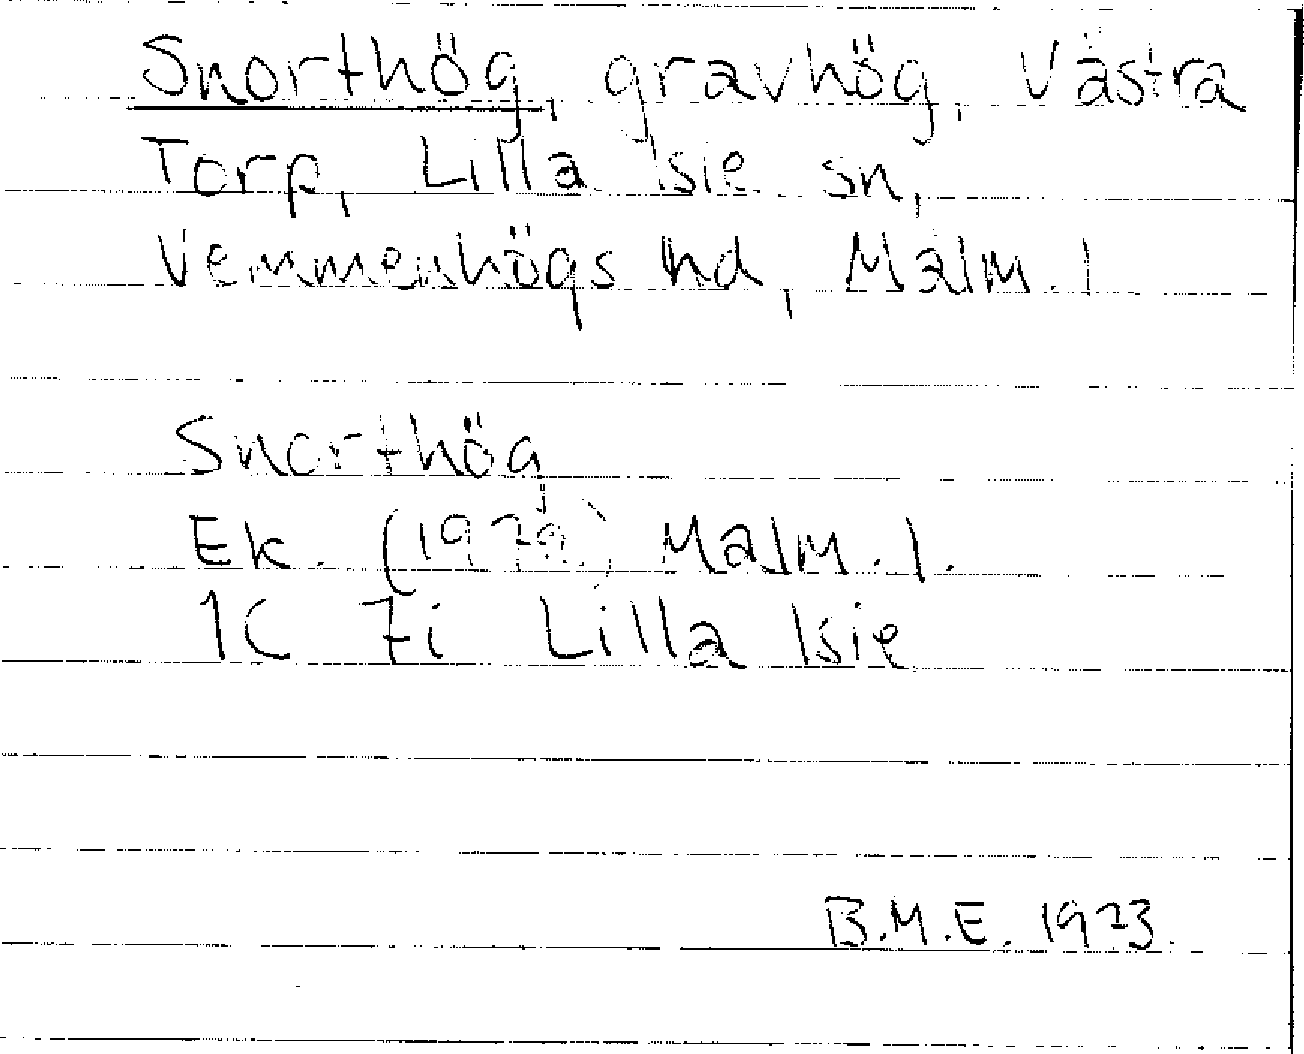 Snorthög, gravhög, Västra
Torp, Lilla Isie sn,
Vemmenhögs hd, Malm. l
Snorthög
Ek. (1929) Malm. l.
1C 7i Lilla Isie
B.M.E. 1973.